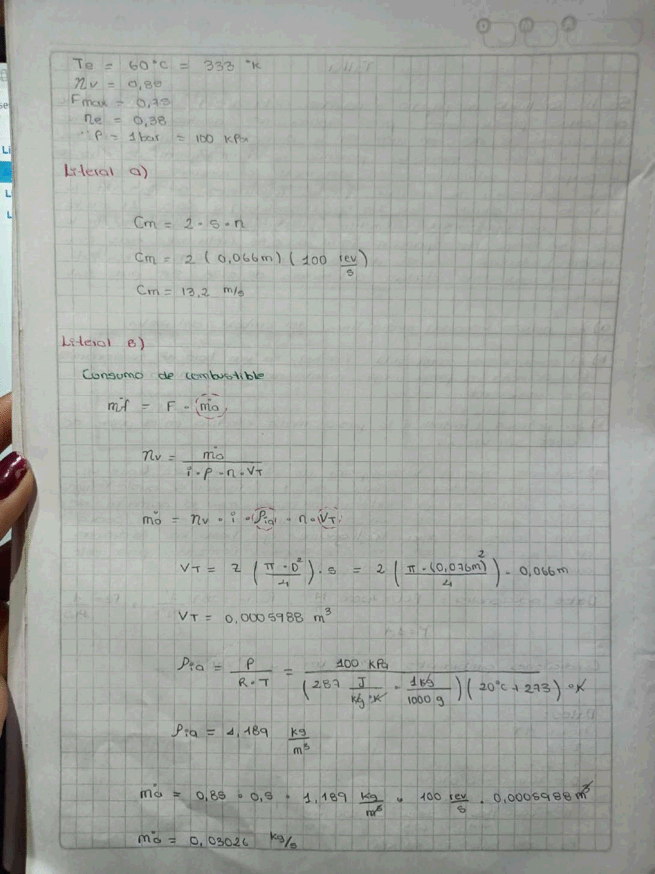 Te = 60°C = 333 °K
ηv =
Fmax =
ηe = 0,38
P = 1bar = 100 KPa
Literal a)
Cm = 2 · s · n
Cm = 2 (0,066m) (100 rev/s)
Cm = 13,2 m/s
Literal B)
Consumo de combustible
ṁf = F · ṁa
ηv = ṁa / (i · ρ · n · VT)
ṁa = ηv · i · ρia · n · VT
VT = Z (π · D² / 4) · s = 2 (π · (0,076m)² / 4) · 0,066m
VT = 0,0005988 m³
ρia = P / (R · T) = 100 KPa / (287 J/Kg °K · 1Kg/1000 g) (20°C + 273) °K
ρia = 1,189 kg/m³
ṁa = · 0,5 · 1,189 kg/m³ · 100 rev/s · 0,0005988 m³
ṁa = 0,03026 kg/s